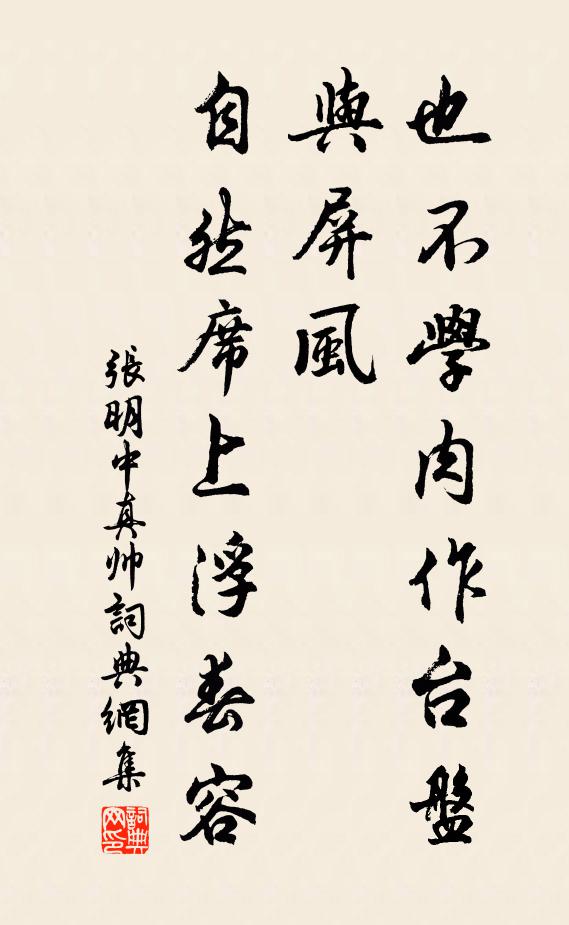 也不學肉作台盤
與屏風
自然席上浮春容
張明中真帅詞典網集
詞典网印